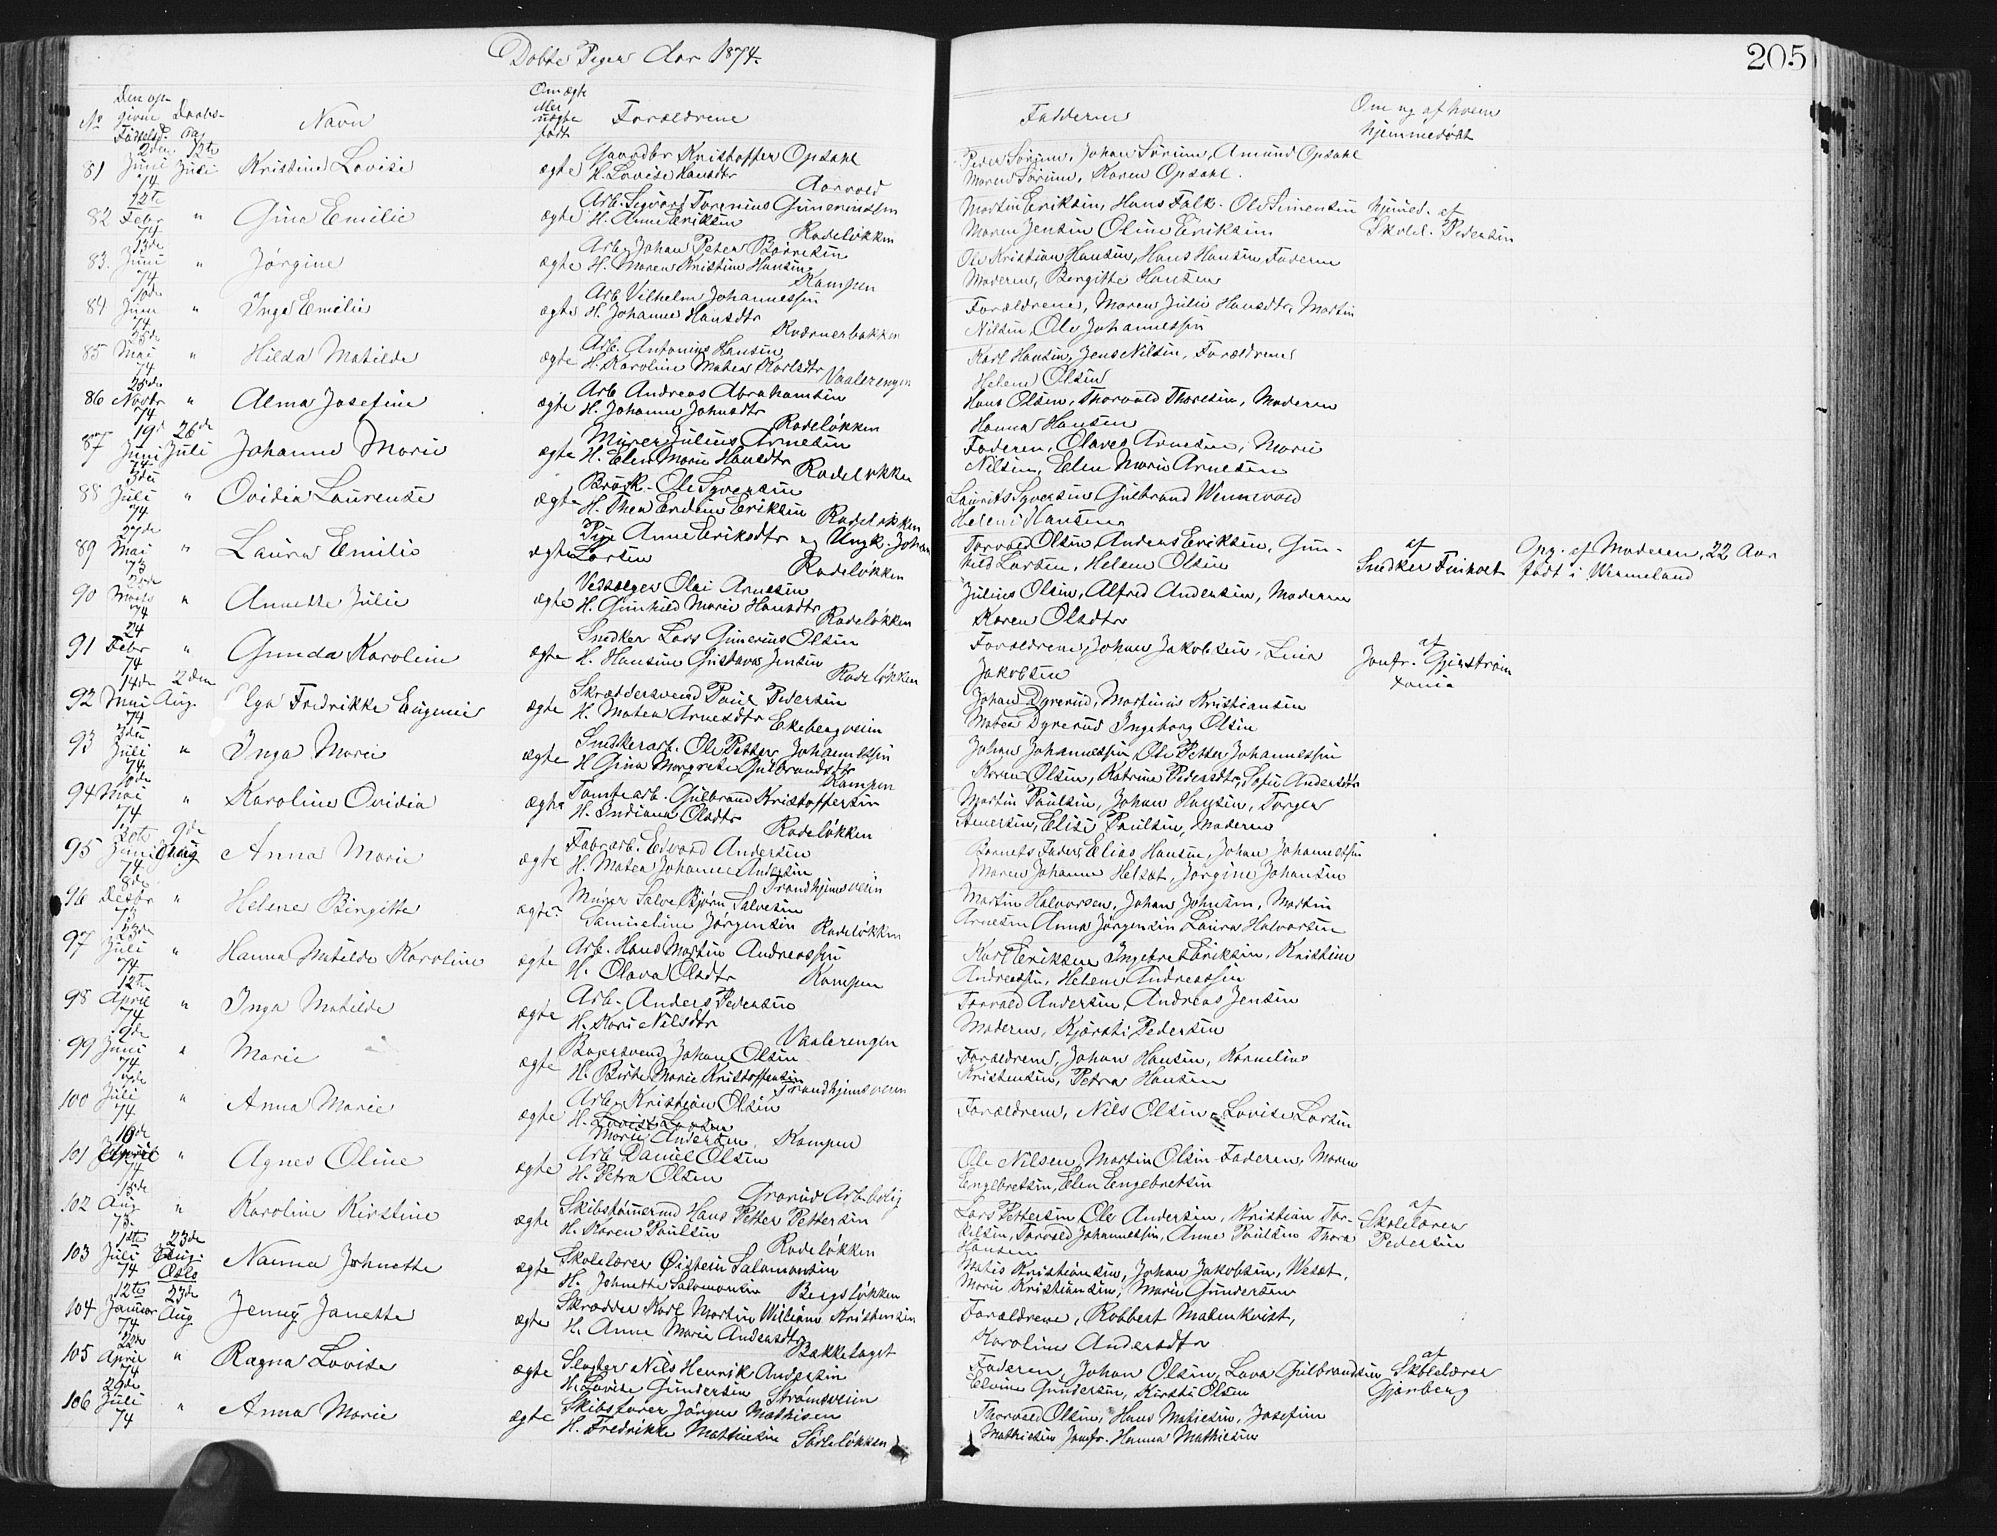 Døbte Piger Aar 1874.
205
No
Den op-
givne
Fødselsd.
Daabs-
dag
Navn
Om ægte
eller
uægte
født
Forældrene
Fadderne
Om og af hvem
hjemmedøbt
81 2den Juni 74 12te Juli Kristine Lovise ægte Gaardbr Kristoffer Opdahl
H. Lovise Hansdtr Aarvold
Peder Sørum, Johan Sørum, Amund Opdahl
Maren Sørum, Karen Opdahl.
82 12te Febr 74 " Gina Emilie ægte Arb. Sigvart Torenius Guneriussen
H. Anne Eriksen Rodeløkken
Martin Eriksen, Hans Falk. Ole Simensen hjemmed. af
Maren Jensen Oline Eriksen Skolel. Pedersen
83. 13de Juni 74 " Jørgine ægte Arb. Johan Peter Børresen
H. Maren Kristine Hansen Kampen
Ole Kristian Hansen, Hans Hansen, Faderen
Moderen, Bergitte Hansen
84 10de Juni 74 " Inga Emilie ægte Arb. Vilhelm Johannessen
H. Johanne Hansdtr Kværnerbakken
Forældrene, Maren Julie Hansdtr, Martin
Nilsen, Ole Johannessen
85 25de Mai 74 " Hilda Matilde ægte Arb. Antonius Hansen
H. Karoline Matea Karlsdtr Vaalerengen
Karl Hansen, Jens Nilsen, Forældrene
Helene Olsen
86 28de Novbr 74 " Alma Josefine ægte Arb Andreas Abrahamsen
H. Johanne Johnsdtr Rodeløkken
Hans Olsen, Thorvald Thoresen, Moderen
Hanna Hansen
87 19de Juni 74 26de Juli Johanne Marie ægte Murer Julius Arnesen
H. Elen Marie Hansdtr Rodeløkken
Faderen, Olaves Arnesen, Marie
Nilsen, Elen Marie Arnesen
88 3die Juli 74 " Ovidia Laurense ægte Brøstk. Ole Syversen
H. Thea Endine Eriksen Rodeløkken
Laurits Syversen Gulbrand Wennevold
Helene Hansen
89 27de Mai 73 " Laura Emilie ægte Pige Anne Eriksdtr og Ungk. Johan
Larsen Rodeløkken
Torvald Olsen, Anders Eriksen, Gun-
hild Larsen, Helene Olsen
af
Snedker Finholt
Opg. af Moderen, 22 Aar
født i Wermeland
90 23de Marts 74 " Annette Julie ægte Vedsælger Olai Arnesen
H. Gunhild Marie Hansdtr Rodeløkken
Julius Olsen, Alfred Andersen, Moderen
Karen Olsdtr
91 24 Febr 74 " Gunda Karoline ægte Snedker Lars Gunerius Olsen
H. Hansine Gustava Jensen Rodeløkken
Forældrene, Johan Jakobsen, Lina
Jakobsen
af
Jomfr. Gjerstrøm
92 14de Mai 74 2den Aug. Olga Fredrikke Eugenie ægte Skræddersvend Paul Pedersen
H. Matea Arnesdtr Ekebergveien
Johan Dyrerud, Martinius Kristiansen
Matea Dyrerud Ingeborg Olsen
93 3die Juli 74 " Inga Marie ægte Snedkerarb. Ole Petter Johannessen
H Gina Margrete Gulbrandsdtr Kampen
Johan Johannessen Ole Petter Johannessen
Karen Olsen, Katrine Pedersdtr, Sofie Andersdtr
94 10de Mai 74 " Karoline Ovidia ægte Tomtearb. Gulbrand Kristoffersen
H. Indiana Olsdtr Rodeløkken
Martin Paulsen, Johan Hansen, Torger
Elise Paulsen, Moderen
95 30te Juni 74 9de Aug Anna Marie ægte Fabr.arb. Edvard Andersen
H. Matea Johanne Andersen Trondhjemsveien
Barnets Fader, Elias Hansen, Johan Johannessen
Maren Johanne Helset, Jørgine Johansen
96 8de Decbr 73 " Helene Birgitte ægte: Murer Salve Bjørn Salvesen
Samueline Jørgensen Rodeløkken
Martin Halvorsen, Johan Johnsen, Martin
Arnesen Anna Jørgensen Laura Halvorsen
97 23de Juli 74 " Hanna Matilde Karoline ægte Arb. Hans Martin Andreassen
H. Olava Olsdtr Kampen
Karl Eriksen Ingebret Eriksen, Kristine
Andreassen, Helene Andreassen
98 12te April 74 " Inga Matilde ægte Arb. Anders Pedersen
H. Kari Nilsdtr Vaalerengen
Torvald Andersen, Andreas Jensen
Moderen, Kjersti Pedersen
99 9de Juni 74 " Marie ægte Bagersvend Johan Olsen
H. Birte Marie Kristoffersen Trondhjemsveien
Forældrene, Johan Hansen, Kornelius
Kristensen, Petra Hansen
100 Juli 74 " Anna Marie ægte Arb. Kristian Olsen
H. Lovise Larsen
Marie Andersen, Kampen
Forældrene, Nils Olsen = Lovise Larsen
101 10de April 74 " Agnes Oline ægte Arb Daniel Olsen
H. Petra Olsen Grorud Arb.bolig
Ole Nilsen, Martin Olsen Faderen, Maren
Engebretsen, Elen Engebretsen
102 18de Aug 73. " Karoline Kirstine ægte Skibstømmermd Hans Petter Pettersen
H. Karen Paulsen Rodeløkken
Lars Pettersen, Ole Andersen, Kristian Tor-
kilsen, Torvald Johannessen, Anne Paulsen Thora
Hansen
af
Skolelærer
Pedersen
103 1ste Juli 74 23de Aug. Oslo Nanna Johnette ægte Skolelærer Øistein Salomonsen
H. Johnette Salomonsen Bergsløkken
Matis Kristiansen, Johan Jakobsen, Weset,
Marie Kristiansen, Marie Gundersen
104 12te Januar 74 23de Aug Jenny Janette ægte Skrædder Karl Martin Wiliam Kristensen
H. Anne Marie Andersdtr Bækkelaget
Forældrene, Robbert Malmkvist,
Karoline Andersdtr
105 22de April 74 " Ragna Lovise ægte Slagter Nils Henrik Andersen
H. Lovise Gundersen Strømsveien
Faderen, Johan Olsen, Lava Gulbrandsen
Elvine Gundersen, Kirsti Olsen
af
Skolelærer
Gjørberg
106 29de Juli 74 " Anna Marie ægte Skibsfører Jørgen Mathisen
H. Fredrikke Mathiesen Sørliløkken
Thorvald Olsen, Hans Matiesen, Josefine
Mathiesen Jomfr. Hanna Mathiesen